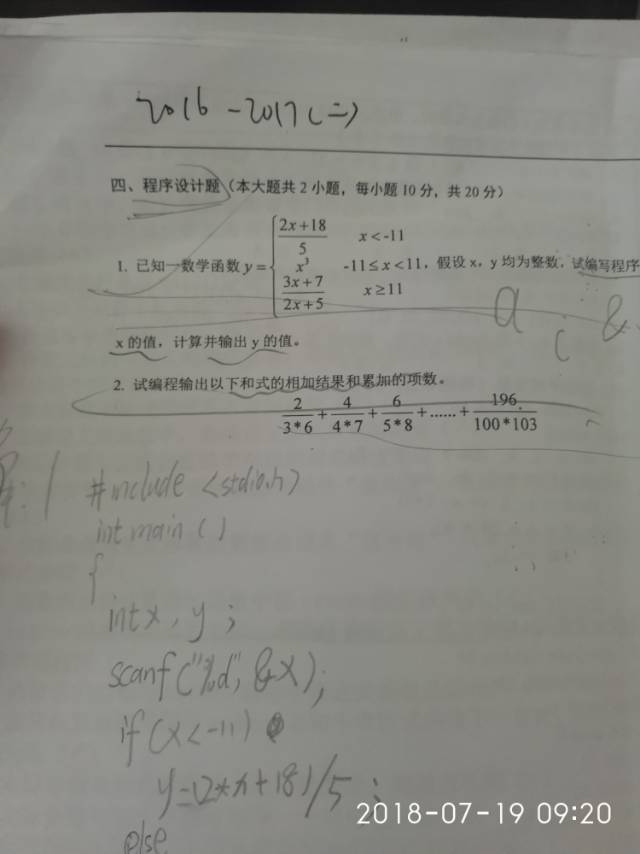 2016-2017(二)
四、程序设计题（本大题共 2 小题，每小题 10 分，共 20 分）
2x+18
5
x<-11
1. 已知一数学函数 y=
x³
-11≤x<11，假设 x，y 均为整数，试编写程序
3x+7
2x+5
x≥11
a
i
&
x 的值，计算并输出 y 的值。
2. 试编程输出以下和式的相加结果和累加的项数。
2/3*6 + 4/4*7 + 6/5*8 + …… + 196/100*103
:1
#include <stdio.h>
int main ()
{
int x, y ;
scanf("%d", &x);
if(x<-11)
y=(2*x+18)/5 ;
else
2018-07-19 09:20